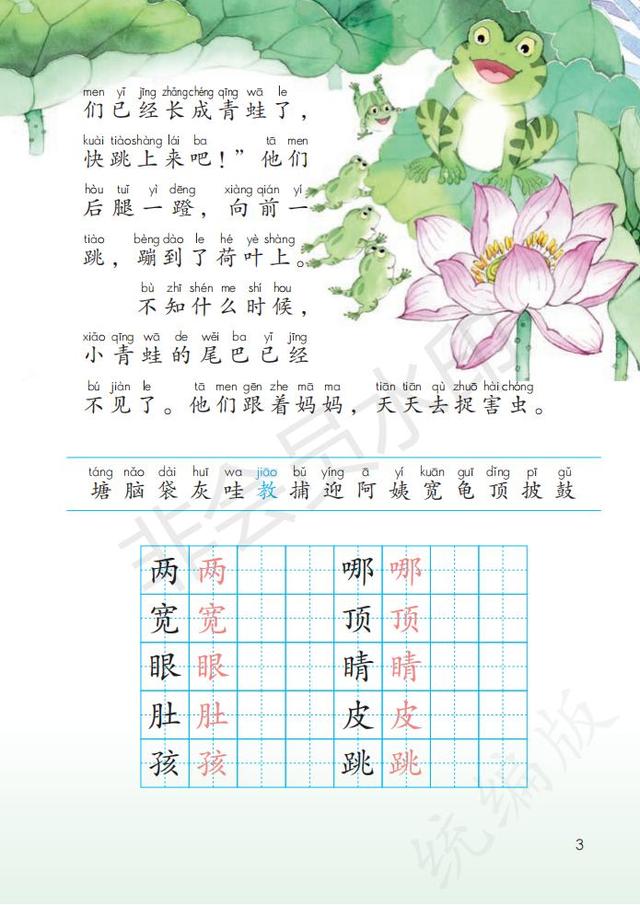 men yī jīng zhǎngchéng qīng wā le
们已经长成青蛙了，
kuài tiàoshàng lái ba tā men
快跳上来吧！”他们
hòu tuǐ yì dēng xiàng qián yí
后腿一蹬，向前一
tiào bèng dào le hé yè shàng
跳，蹦到了荷叶上。
bù zhī shén me shí hou
不知什么时候，
xiǎo qīng wā de wěi ba yǐ jīng
小青蛙的尾巴已经
bú jiàn le tā men gēn zhe mā ma tiān tiān qù zhuō hài chóng
不见了。他们跟着妈妈，天天去捉害虫。
táng nǎo dài huī wa jiāo bǔ yíng ā yí kuān guī dǐng pī gǔ
塘脑袋灰哇教捕迎阿姨宽龟顶披鼓
两两 哪哪
宽宽 顶顶
眼眼 睛睛
肚肚 皮皮
孩孩 跳跳
3
非会员水印
统编版